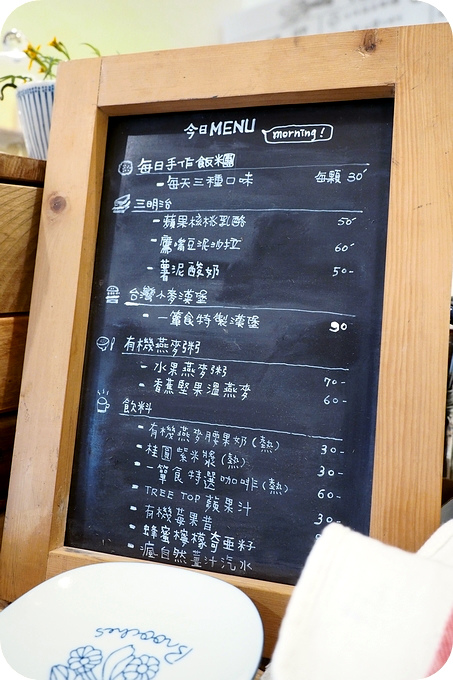 今日MENU morning!
每日手作飯糰
-每天三種口味 每顆 30
三明治
-蘋果核桃乳酪 50-
-鷹嘴豆泥沙拉 60-
-薯泥酸奶 50-
台灣小麥漢堡
-一簞食特製漢堡 90
有機燕麥粥
-水果燕麥粥 70-
-香蕉堅果溫燕麥 60-
飲料
-有機燕麥腰果奶(熱) 30-
-桂圓紫米漿(熱) 30-
-一簞食特選咖啡(熱) 60-
-TREE TOP 蘋果汁
-有機莓果昔 30-
-蜂蜜檸檬奇亞籽
-瘋自然薑汁汽水
Brooches